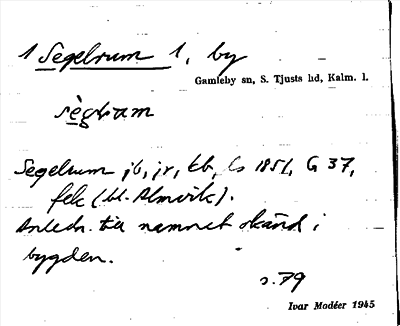 1 Segelrum 1, by
Gamleby sn, S. Tjusts hd, Kalm. l.
sègḷram
Segelrum jb, jr, kb, Ls 1851, G 37,
fek (bl. Almvik).
Anledn. till namnet okänd i
bygden.
s. 79
Ivar Modéer 1945